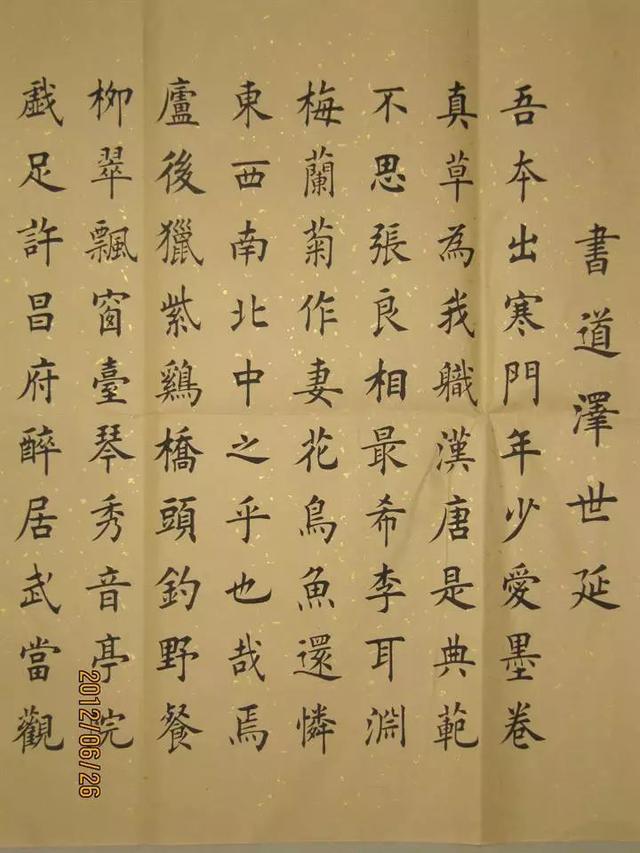 書道澤世延
吾本出寒門年少愛墨卷
真草為我職漢唐是典範
不思張良相最希李耳淵
梅蘭菊作妻花鳥魚還憐
東西南北中之乎也哉焉
廬後獵紫鷄橋頭釣野餐
柳翠飄窗臺琴秀音亭院
戲足許昌府醉居武當觀
2012/06/26